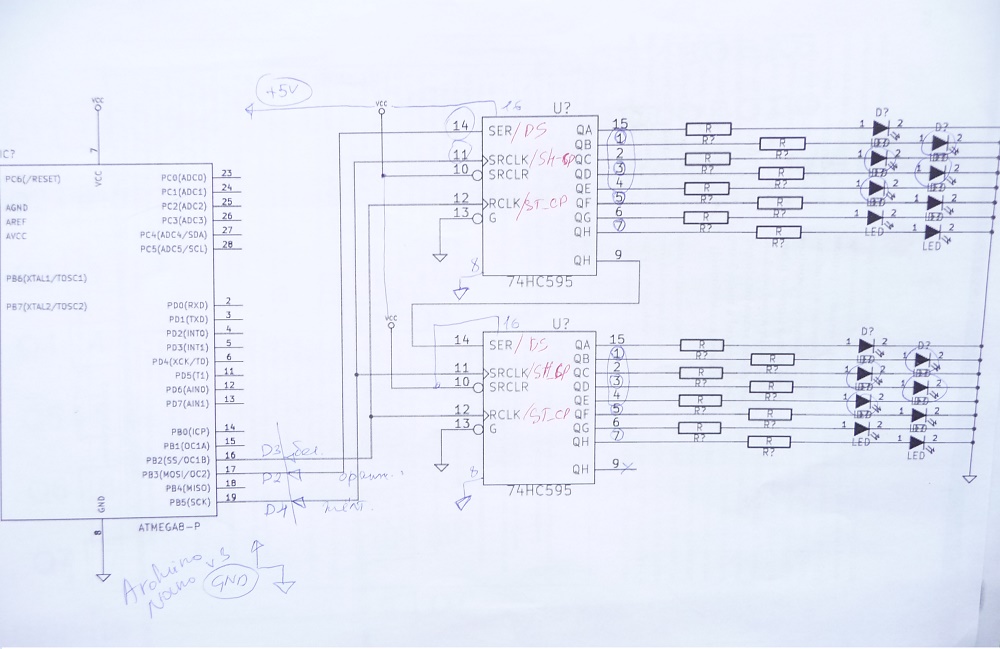 +5V
VCC
VCC
IC?
7
VCC
PC6(/RESET)
AGND
AREF
AVCC
PB6(XTAL1/TOSC1)
PB7(XTAL2/TOSC2)
GND
8
PC0(ADC0) 23
PC1(ADC1) 24
PC2(ADC2) 25
PC3(ADC3) 26
PC4(ADC4/SDA) 27
PC5(ADC5/SCL) 28
PD0(RXD) 2
PD1(TXD) 3
PD2(INT0) 4
PD3(INT1) 5
PD4(XCK/T0) 6
PD5(T1) 11
PD6(AIN0) 12
PD7(AIN1) 13
PB0(ICP) 14
PB1(OC1A) 15
PB2(SS/OC1B) 16
PB3(MOSI/OC2) 17
PB4(MISO) 18
PB5(SCK) 19
ATMEGA8-P
D3 бел.
D2
D4
Arduino
Nano v3
GND
16 U?
14 SER/DS QA 15
QB 1
11 SRCLK/SH-CP QC 2
10 SRCLR QD 3
QE 4
12 RCLK/ST_CP QF 5
13 G QG 6
QH 7
8 QH 9
74HC595
VCC
16 U?
14 SER/DS QA 15
QB 1
11 SRCLK/SH_CP QC 2
10 SRCLR QD 3
QE 4
12 RCLK/ST_CP QF 5
13 G QG 6
QH 7
8 QH 9
74HC595
R R? 1 D? 2
R R? 1 D? 2
R R? 1 2
R R? 1 2
R R? 1 2
R R? 1 2
R R? 1 2 LED
R R? 1 2 LED
R R? 1 D? 2
R R? 1 D? 2
R R? 1 2
R R? 1 2
R R? 1 2
R R? 1 2
R R? 1 2 LED
R R? 1 2 LED